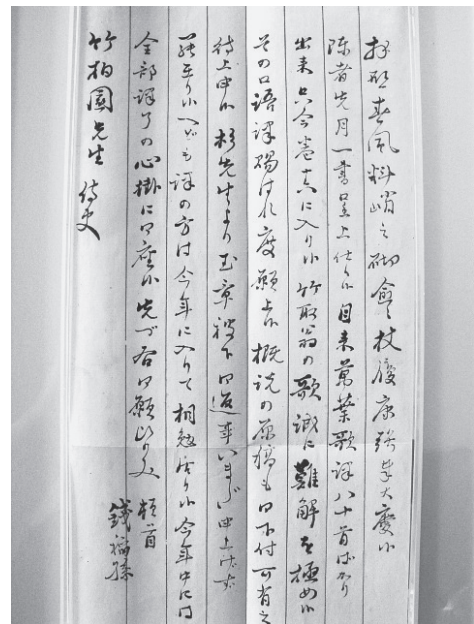 拝啓春風料峭之砌愈々杖履康強奉大慶候
陳者先月一書呈上仕候 目来萬葉歌譯八十首ばかり
出来只今巻十六に入り候 竹取翁の歌誠に難解を極め候
その口語譯賜はれ度願上候 概説の原稿も御下付可有之
待上申候 杉先生より玉章被下御返事いまだ申上げず
罷在り候へども譯の方は今年に入りて相勉候 今年中には
全部譯了の心掛に御座候 先づ右御願迄
頓首
銭稲孫
竹柏園先生 侍史